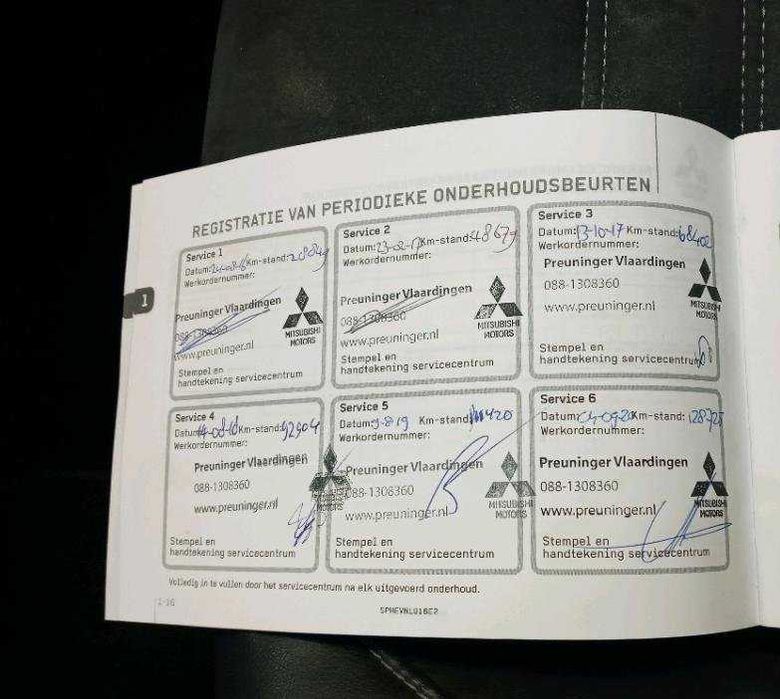 REGISTRATIE VAN PERIODIEKE ONDERHOUDSBEURTEN
1
Service 1
Datum: 24-08-16 Km-stand: 20849
Werkordernummer:
Preuninger Vlaardingen
088-1308360
www.preuninger.nl
MITSUBISHI
MOTORS
Stempel en
handtekening servicecentrum
Service 2
Datum: 23-02-17 Km-stand: 48679
Werkordernummer:
Preuninger Vlaardingen
088-1308360
www.preuninger.nl
MITSUBISHI
MOTORS
Stempel en
handtekening servicecentrum
Service 3
Datum: 13-10-17 Km-stand: 68402
Werkordernummer:
Preuninger Vlaardingen
088-1308360
www.preuninger.nl
MITSUBISHI
MOTORS
Stempel en
handtekening servicecentrum
Service 4
Datum: Km-stand: 92904
Werkordernummer:
Preuninger Vlaardingen
088-1308360
www.preuninger.nl
MOTORS
Stempel en
handtekening servicecentrum
Service 5
Datum: Km-stand:
Werkordernummer:
Preuninger Vlaardingen
088-1308360
www.preuninger.nl
MITSUBISHI
MOTORS
Stempel en
handtekening servicecentrum
Service 6
Datum: Km-stand: 128728
Werkordernummer:
Preuninger Vlaardingen
088-1308360
www.preuninger.nl
MITSUBISHI
MOTORS
Stempel en
handtekening servicecentrum
Volledig in te vullen door het servicecentrum na elk uitgevoerd onderhoud.
1-16
SPHEVNLU16E2